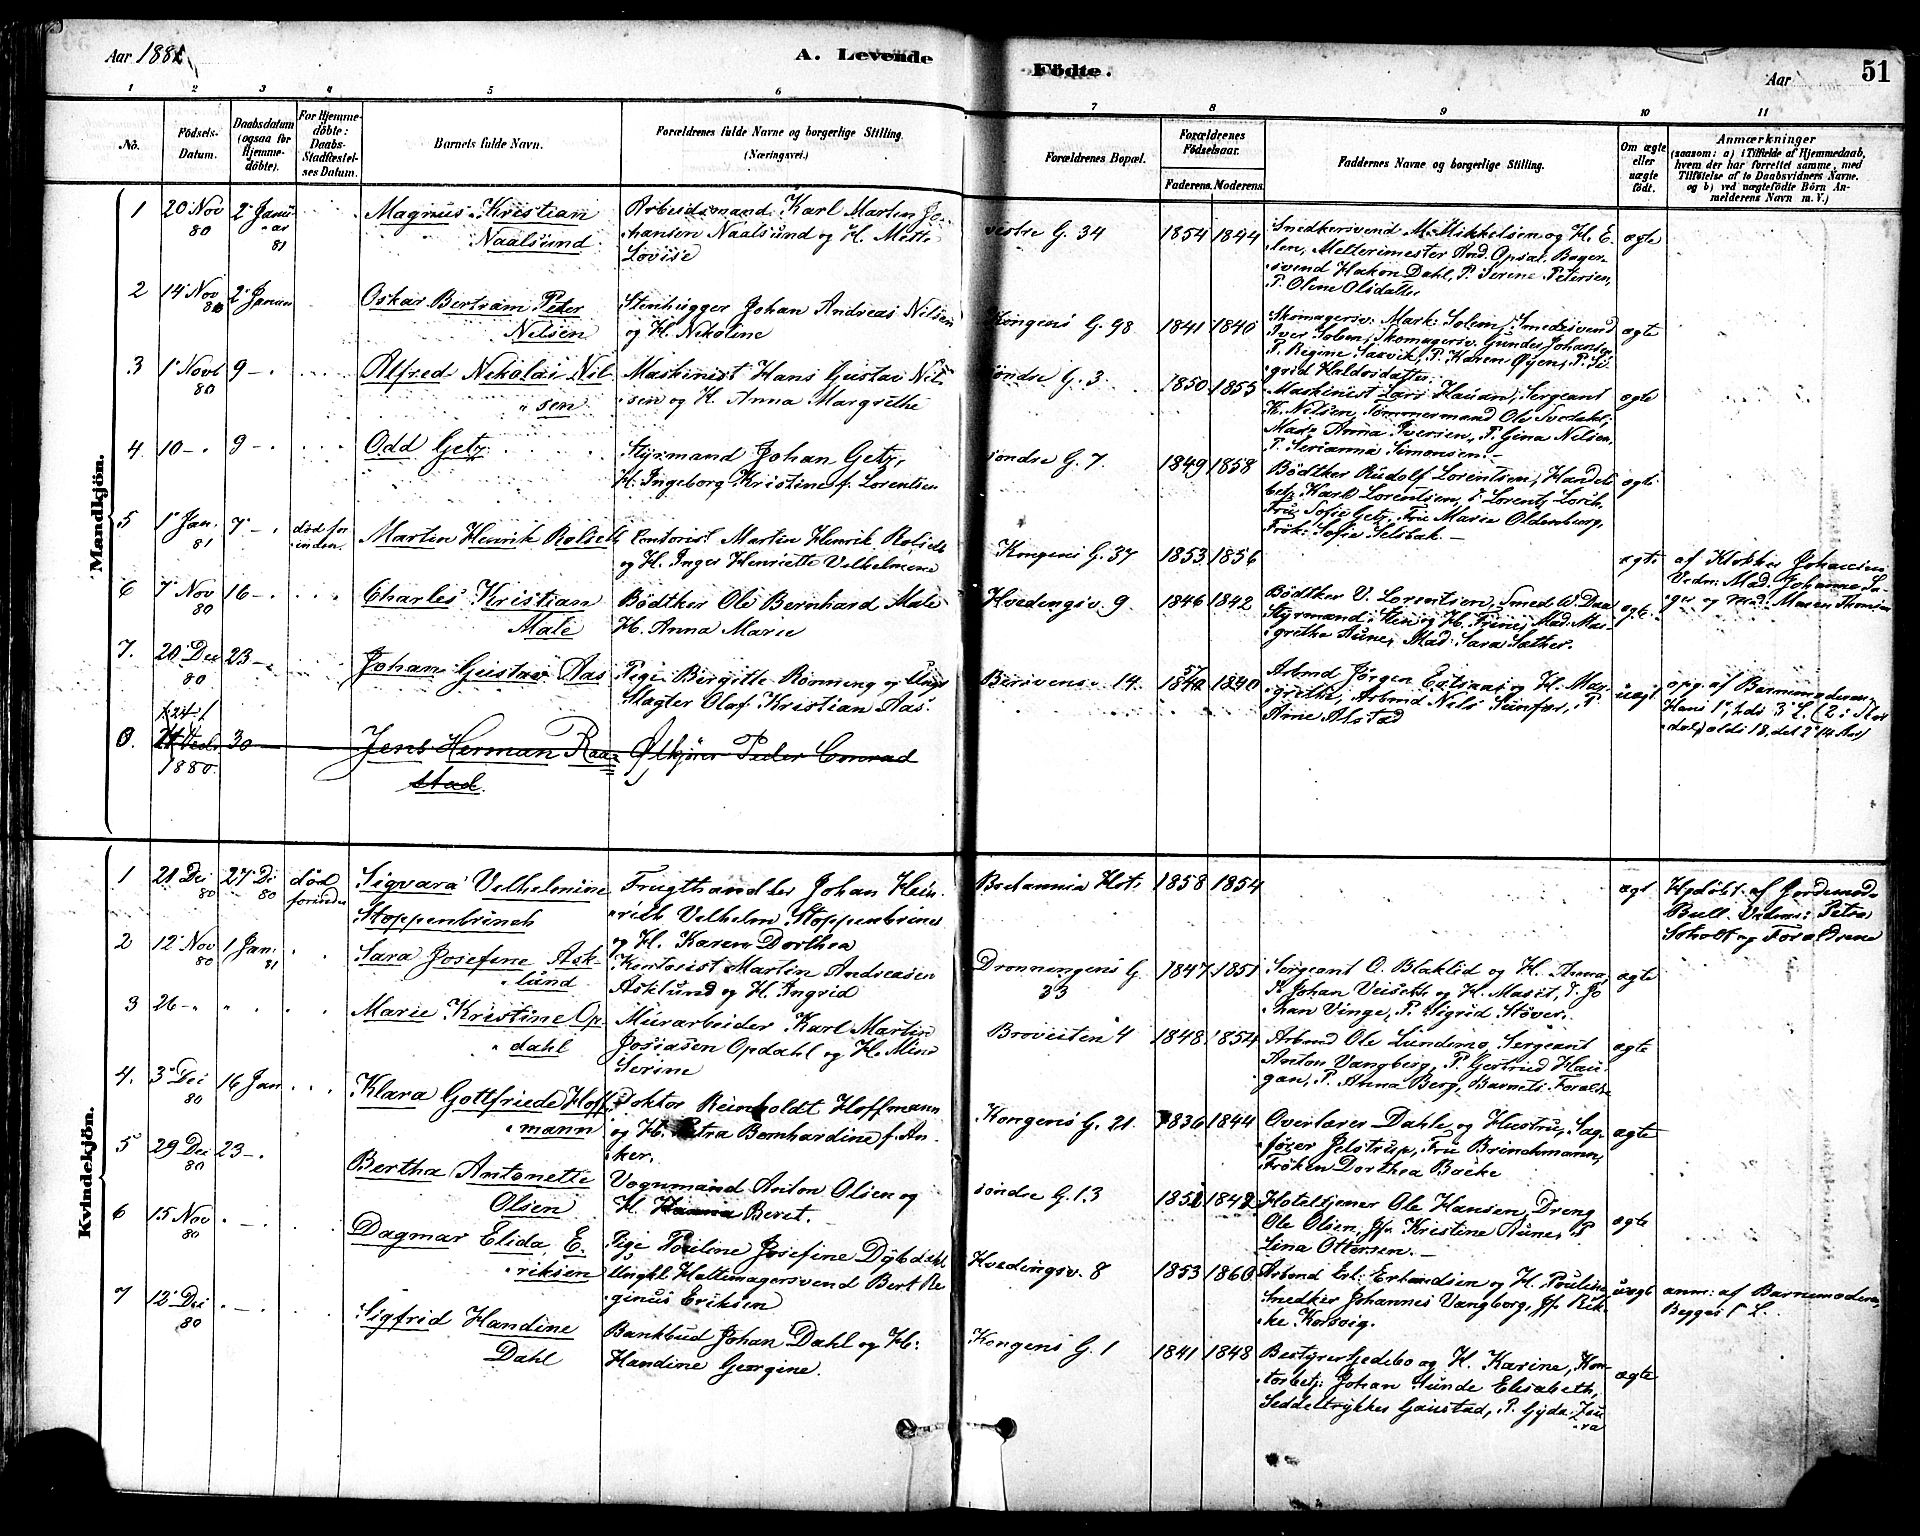 Aar 1881
A. Levende
Födte.
Aar
51
1 2 3 4 5 6 7 8 9 10 11
No.
Födsels-
Datum.
Daabsdatum
(ogsaa for
Hjemme-
döbte).
For Hjemme-
döbte:
Daabs-
Stadfæstel-
ses Datum.
Barnets fulde Navn.
Forældrenes fulde Navne og borgerlige Stilling.
(Næringsvei.)
Forældrenes Bopæl.
Forældrenes
Födselsaar.
Faderens. Moderens.
Faddernes Navne og borgerlige Stilling.
Om ægte
eller
uægte
födt.
Anmærkninger
(saasom: a) i Tilfælde af Hjemmedaab,
hvem der har forrettet samme, med
Tilföielse af to Daabsvidners Navne.
og b) ved uægtefödte Börn An-
melderens Navn m. V.)
Mandkjön.
1 20 Nov 80 2 Januar 81
Magnus Kristian
Naalsund
Arbeidsmand Karl Martin Jo-
hansen Naalsund og H. Mette
Lovise
vestre G. 34 1854 1844
Snedkersvend M. Mikkelsen og H. E-
len, Meltermester And. Opsal, Bager-
svend Hakon Dahl, P. Serene Petersen,
P. Oline Olsdatter
ægte
2 14 Nov 80 2 Januar
Oskar Bertram Peter
Nilsen
Stenhugger Johan Andreas Nilsen
og H. Nikoline
Kongens G. 98 1841 1840
Skomagersv. Mark. Solem, Smedsvend
Iver Solem, Skomagersv. Gunder Johansen
P. Regine Saxvik, P. Karen Øyen, P. Si-
grid Haldorsdatter
ægte
3 1 Novb 80 9 -
Alfred Nikolai Nil-
sen
Maskinist Hans Gustav Nil-
sen og H. Anna Margrethe
söndre G. 3 1850 1855
Maskinist Lars Hausan, Sergeant
K. Nilsen, Tömmermand Ole Svedahl,
Mad. Anna Iversen, P. Gina Nelsen,
P. Serianna Simonsen.
ægte
4 10 - 9 -
Odd Getz
Styrmand Johan Getz,
H. Ingeborg Kristine f. Lorentsen
söndre G. 7 1849 1858
Bödtker Rudolf Lorentsen, Handels-
betj. Karl Lorentsen,
Fru Sofie Getz, Fru Marie Oldenborg,
Frök. Sofie Selsbak
ægte
5 1 Jan. 81 7 - död for-
inden.
Martin Henrik Rolseth
Kontorist Martin Henrik Rolseth
og H. Inger Henriette Vilhelmine
Kongens G. 37 1853 1856
ægte
af Klokker Johansen
Vidn: Mad. Johanne
og Mad. Maren Thomsen
6 7 Nov 80 16 -
Charles Kristian
Male
Bödtker Ole Bernhard Male
H. Anna Marie
Hvedingsv. 9 1846 1842
Bödtker V. Lorentsen, Smed W. Daa
Styrmand Sten og H. Trine, Mad. Mar-
grethe Aune, Mad. Sara Sather.
ægte
7. 20 Dec 80 23 -
Johan Gustav Aas
Pige Birgitte Rönning og Ungk.
Slagter Olaf Kristian Aas
Bersvens. 14. 1857 1840
Arbmd Jörgen Estsaas og H. Mar-
grethe, Arbmd Nils Sunfær, P.
Arne Alstad
uægt
opg. af Barnemoderen
Hans 1, hds 3 L.
8. 24 Decb 1880. 30
Jens Herman Raa-
stad.
Ölkjörer Peder Conrad
Kvindekjön.
1 21 Dec 80 27 Dec 80 död forinden
Sigvara Vilhelmine
Stoppenbrinck
Frugthandler Johan Hein-
rich Vilhelm Stoppenbrinck
og H. Karen Dorthea
Britannia Hot. 1858 1854
ægt
Hjdöbt af Jordemod.
Bull. Vidner: Petra
Soholt og Forældrene
2 12 Nov 80 1 Jan. 81
Sara Josefine Ask-
lund
Kontorist Martin Andreasen
Asklund og H. Ingrid
Dronningens G.
33
1847 1851
Sergeant O. Blaklid og H. Anna,
K. Johan Veiseth og H. Maset, J. Jo-
han Vinge, P. Sigrid Stöver.
ægte
3 26 - " "
Marie Kristine Op-
dahl
Murarbeider Karl Martin
Josiasen Opdahl og H. Mine
Serine
Broveiten 4 1848 1854
Arbmd Ole Lundemo, Sergeant
Anton Vangberg, P. Gertrud Hau-
gan, P. Anna Berg, Barnets Forældre
ægte
4. 3 Dec 80 16 Jan
Klara Gottfriede Hoff-
mann
Doktor Reinholdt Hoffmann
og H. Petra Bernhardine f. An-
ker.
Kongens G. 21. 1836 1844
Overlærer Dahle og Hustru, Sag-
förer Jelstrup, Fru Brinchmann,
Fröken Dorthea Bocke
ægte
5 29 Dec 80 23 -
Bertha Antonette
Olsen
Vognmand Anton Olsen og
H. Hanna Beret.
söndre G. 13 1852 1842
Hoteltjener Ole Hansen, Dreng
Ole Olsen, Jfr. Kristine Aune, P.
Lina Ottersen.
ægte
6 15 Nov 80 . -
Dagmar Elida E-
riksen
Pige Pouline Josefine Dybdahl
Ungkl Hattemagersvend Bert Re-
ginus Eriksen
Hvedingsv. 8 1853 1860
Arbmd Erl. Erlandsen og H. Pouline,
Snedker Johannes Vangberg, Jfr. Rik-
ke Korsvig.
uægt
anm: af Barnemoderen
Begges 1 L.
7 12 Dec 80 . -
Sigfrid Handine
Dahl
Bankbud Johan Dahl og H.
Handine Georgine.
Kongens G. 1 1841 1848
Bestyrer Gedebo og H. Karine, Kon-
torbetj. Johan Sunde Elisabeth,
Seddeltrykker Gaustad, P. Gyda, Jfr.
ægte